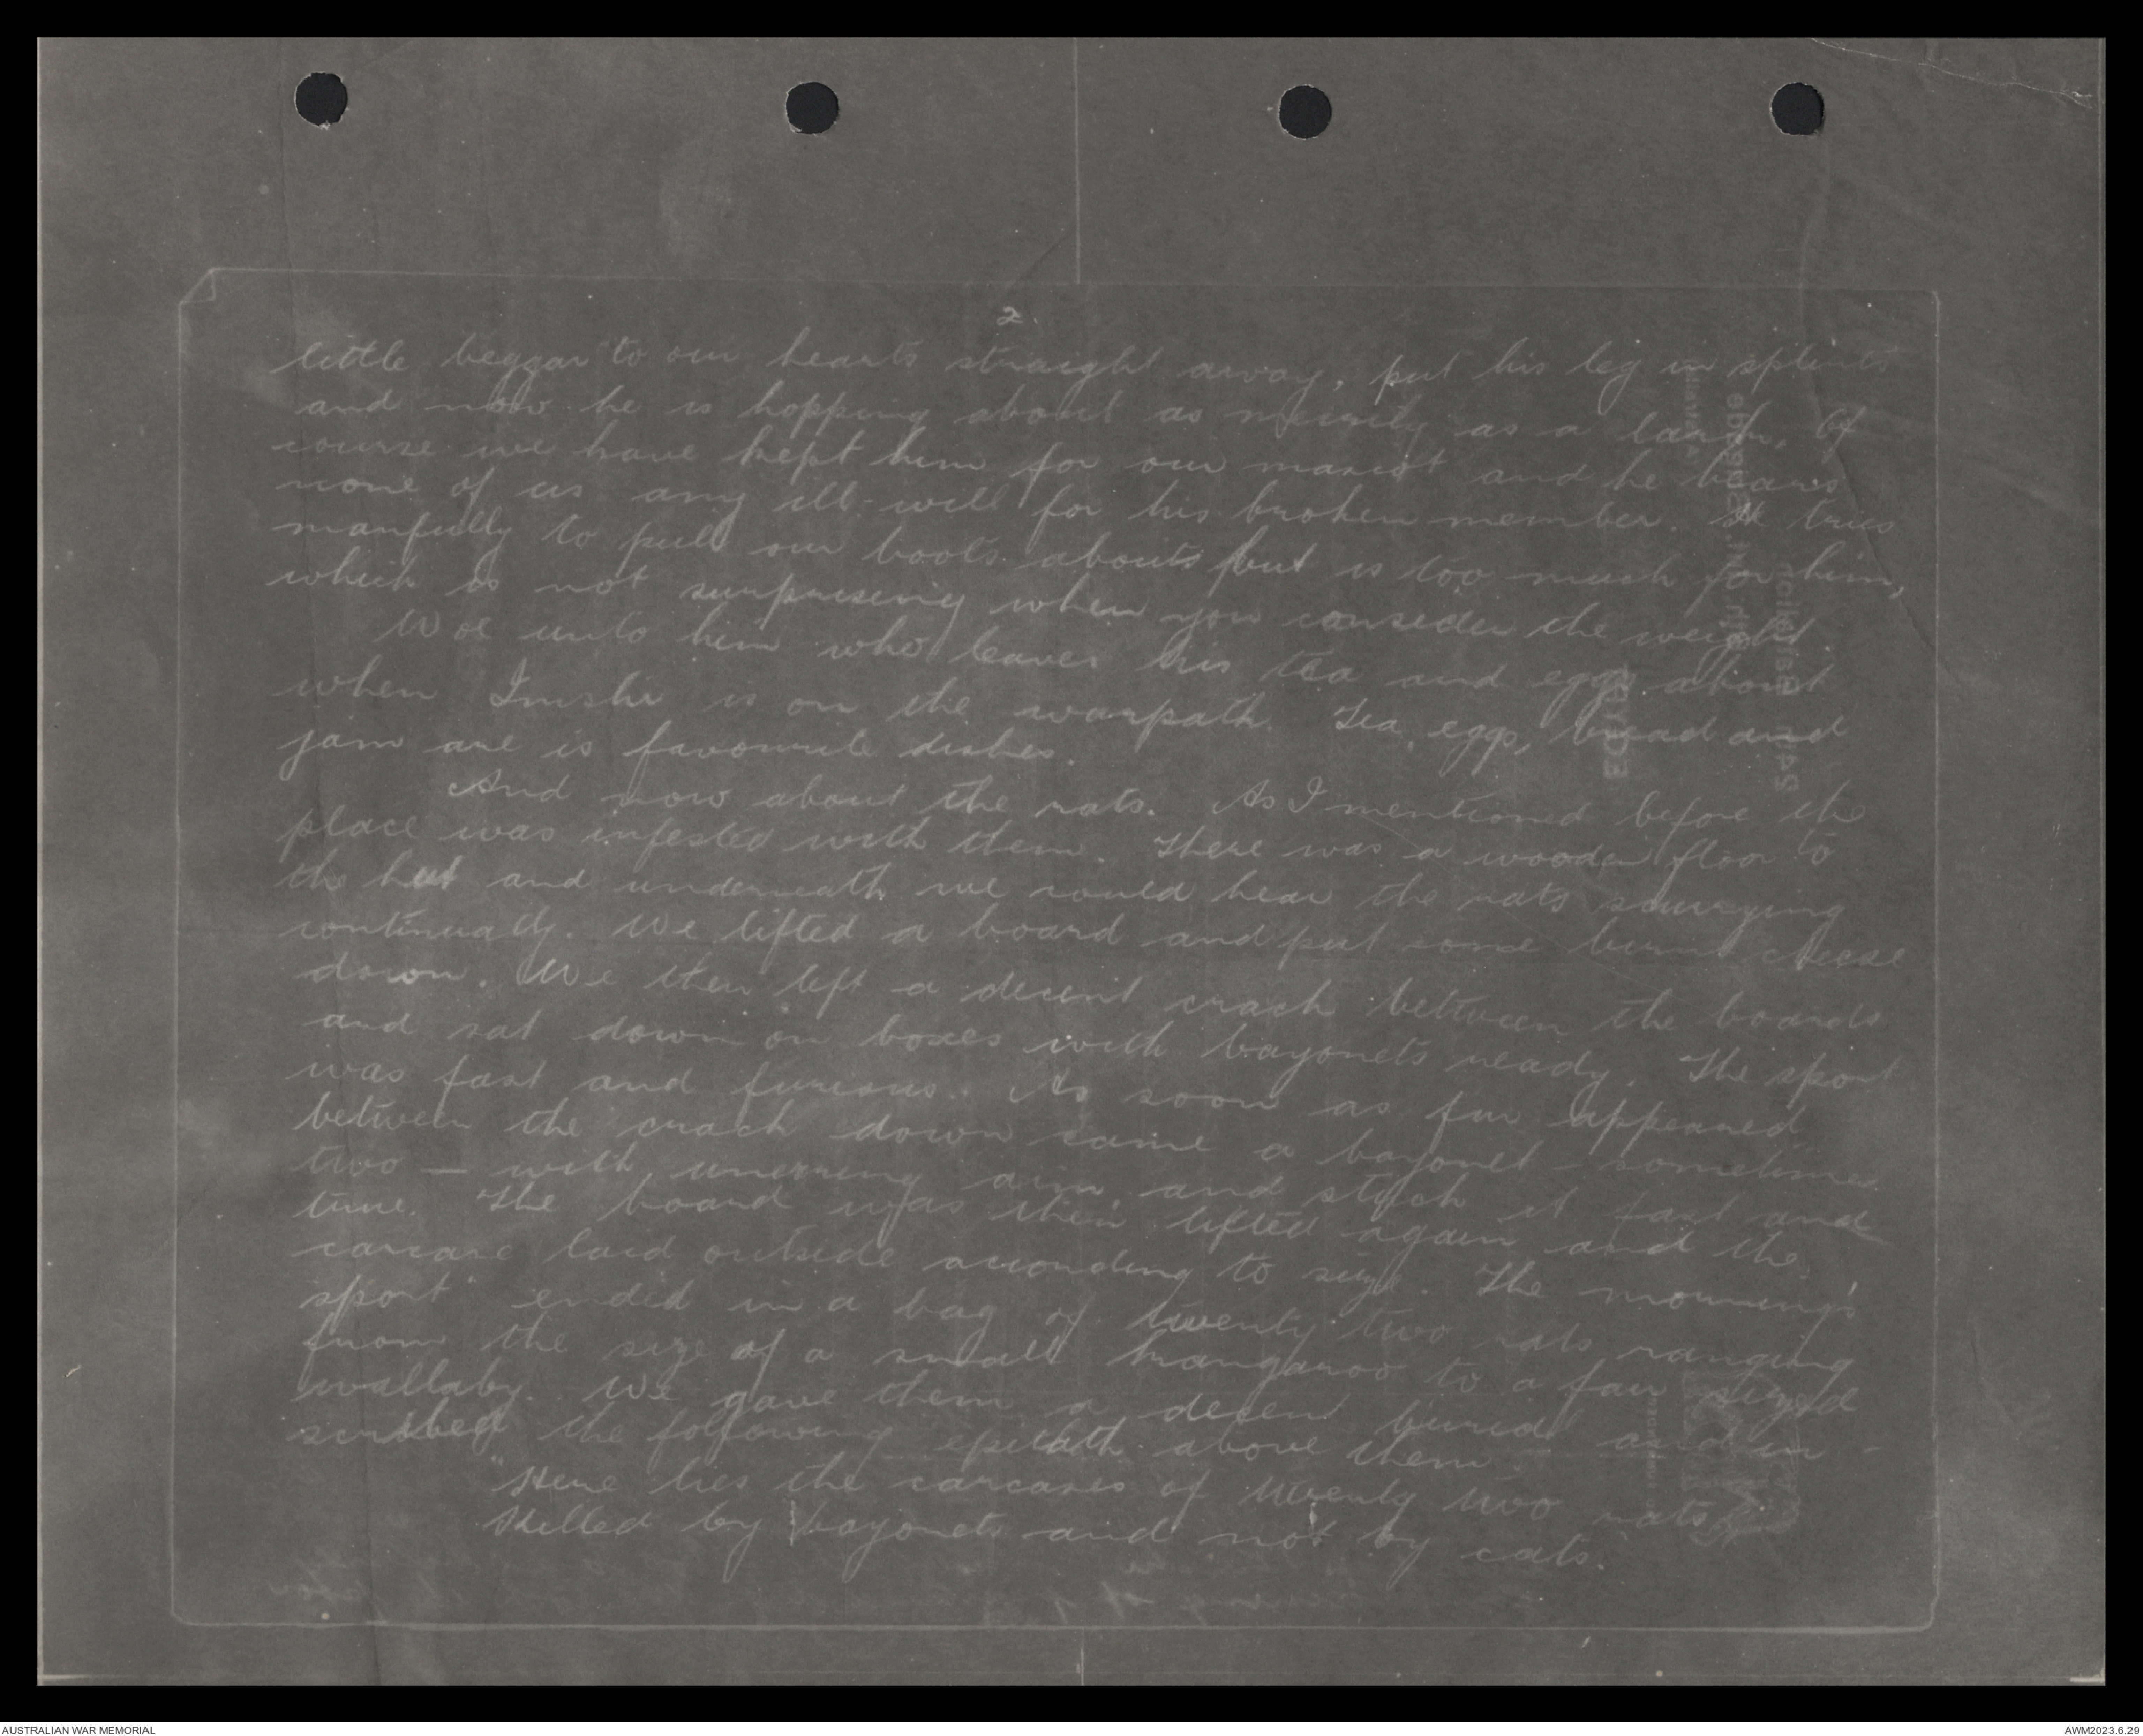 2.
little beggar to our hearts straight away, put his leg in splints
and now he is hopping about as merrily as a lark. Of
course we have kept him for our mascot and he bears
none of us any ill-will for his broken member. He tries
manfully to pull our boots about but is too much for him,
which is not surprising when you consider the weight.
Woe unto him who leaves his tea and eggs about
when is on the warpath. Tea, eggs, bread and
jam are is favourite dishes.
And now about the rats. As I mentioned before the
place was infested with them. There was a wooden floor to
the hut and underneath we could hear the rats scurrying
continually. We lifted a board and put some burnt cheese
down. We then left a decent crack between the boards
and sat down on boxes with bayonets ready. The sport
was fast and furious. As soon as fur appeared
between the crack down came a bayonet - sometimes
two — with unerring aim, and stuck it fast and
true. The board was then lifted again and the
carcase laid outside according to size. The morning's
sport ended in a bag of twenty two rats ranging
from the size of a small kangaroo to a fair sized
wallaby. We gave them a decent burial and in-
scribed the following epitath above them.
"Here lies the carcases of twenty two rats
Killed by bayonets and not by cats.
AUSTRALIAN WAR MEMORIAL
AWM2023.6.29